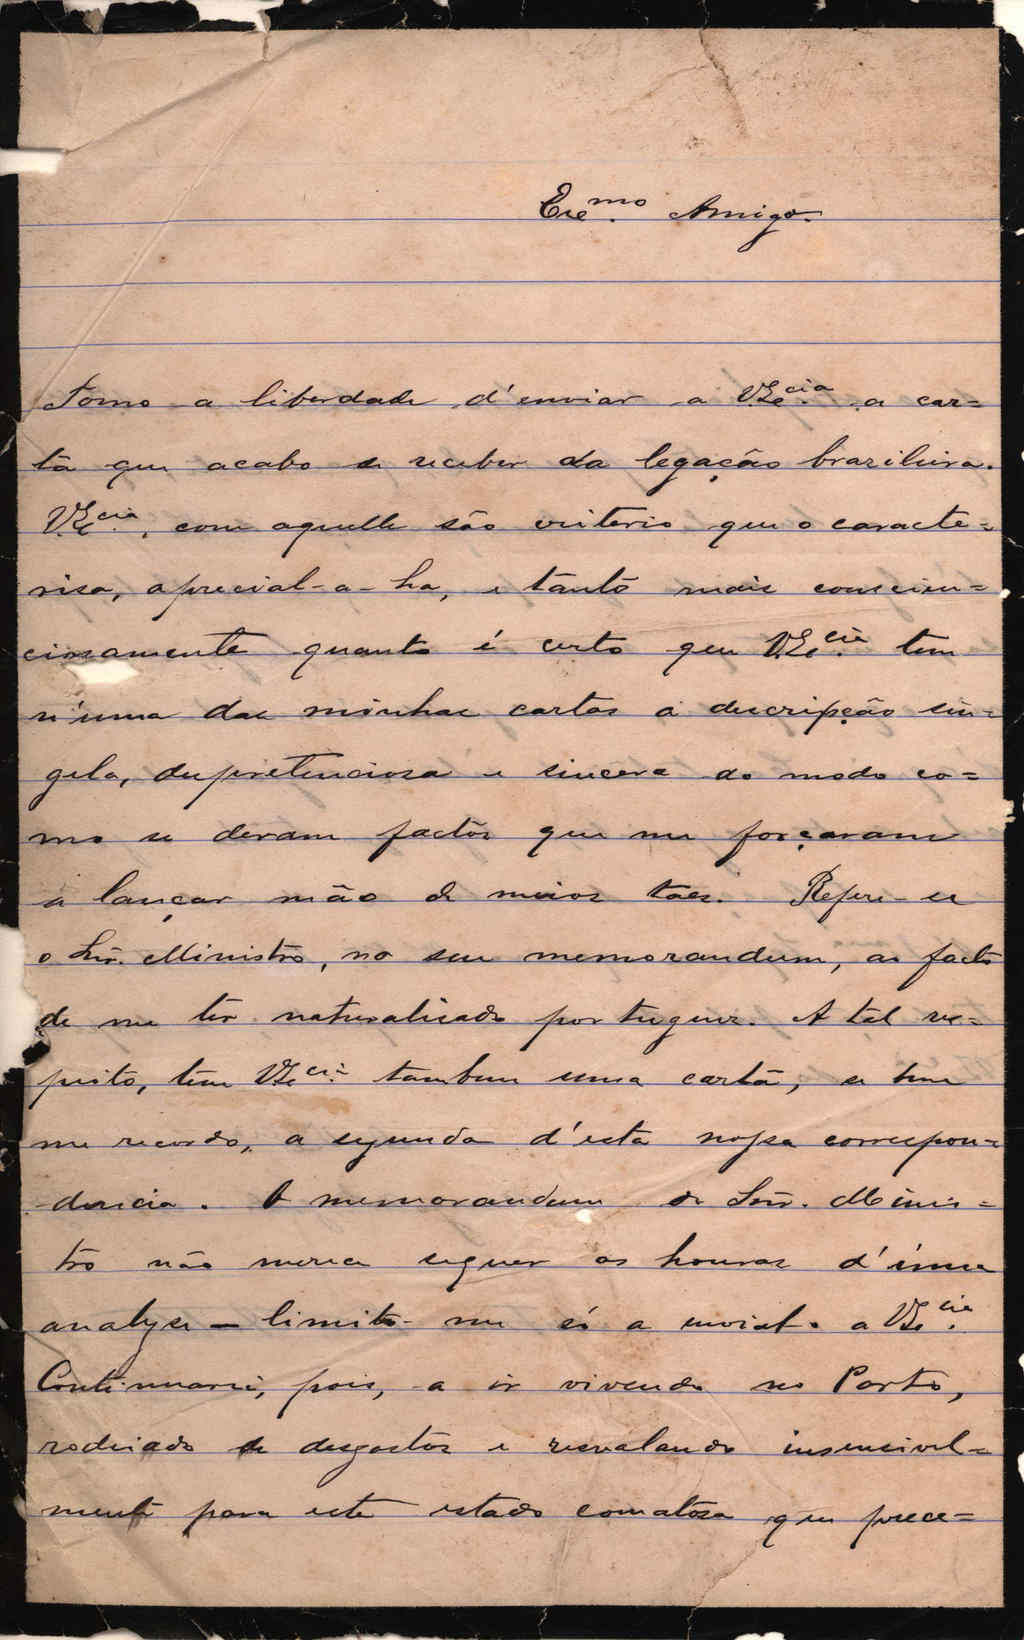 Exc.mo Amigo.
Tomo a liberdade d'enviar a V.Exc.cia a car=
ta que acabo de receber da legação brazileira.
V.Exc.cia, com aquelle são criterio que o caracte=
risa, aprecial-a-ha, e tanto mais conscien=
ciosamente quanto é certo que V.Exc.cia tem
n'uma das minhas cartas a descripção sin=
gela, despretenciosa e sincera do modo co=
mo se deram factos que me forçaram
a lançar mão de meios taes. Refere-se
o Snr. Ministro, no seu memorandum, ao facto
de me ter naturalisado portuguez. A tal res=
peito, tem V.Exc.cia tambem uma carta, se bem
me recordo, a segunda d'esta nossa correspon=
dencia. O memorandum do Snr. Minis=
tro não merece sequer as honras d'uma
analyse — limito-me só a envial-o a V.Exc.cia
Continuarei, pois, a ir vivendo no Porto,
rodeiado de desgostos e resvalando insensivel=
mente para este estado comatoso que prece=